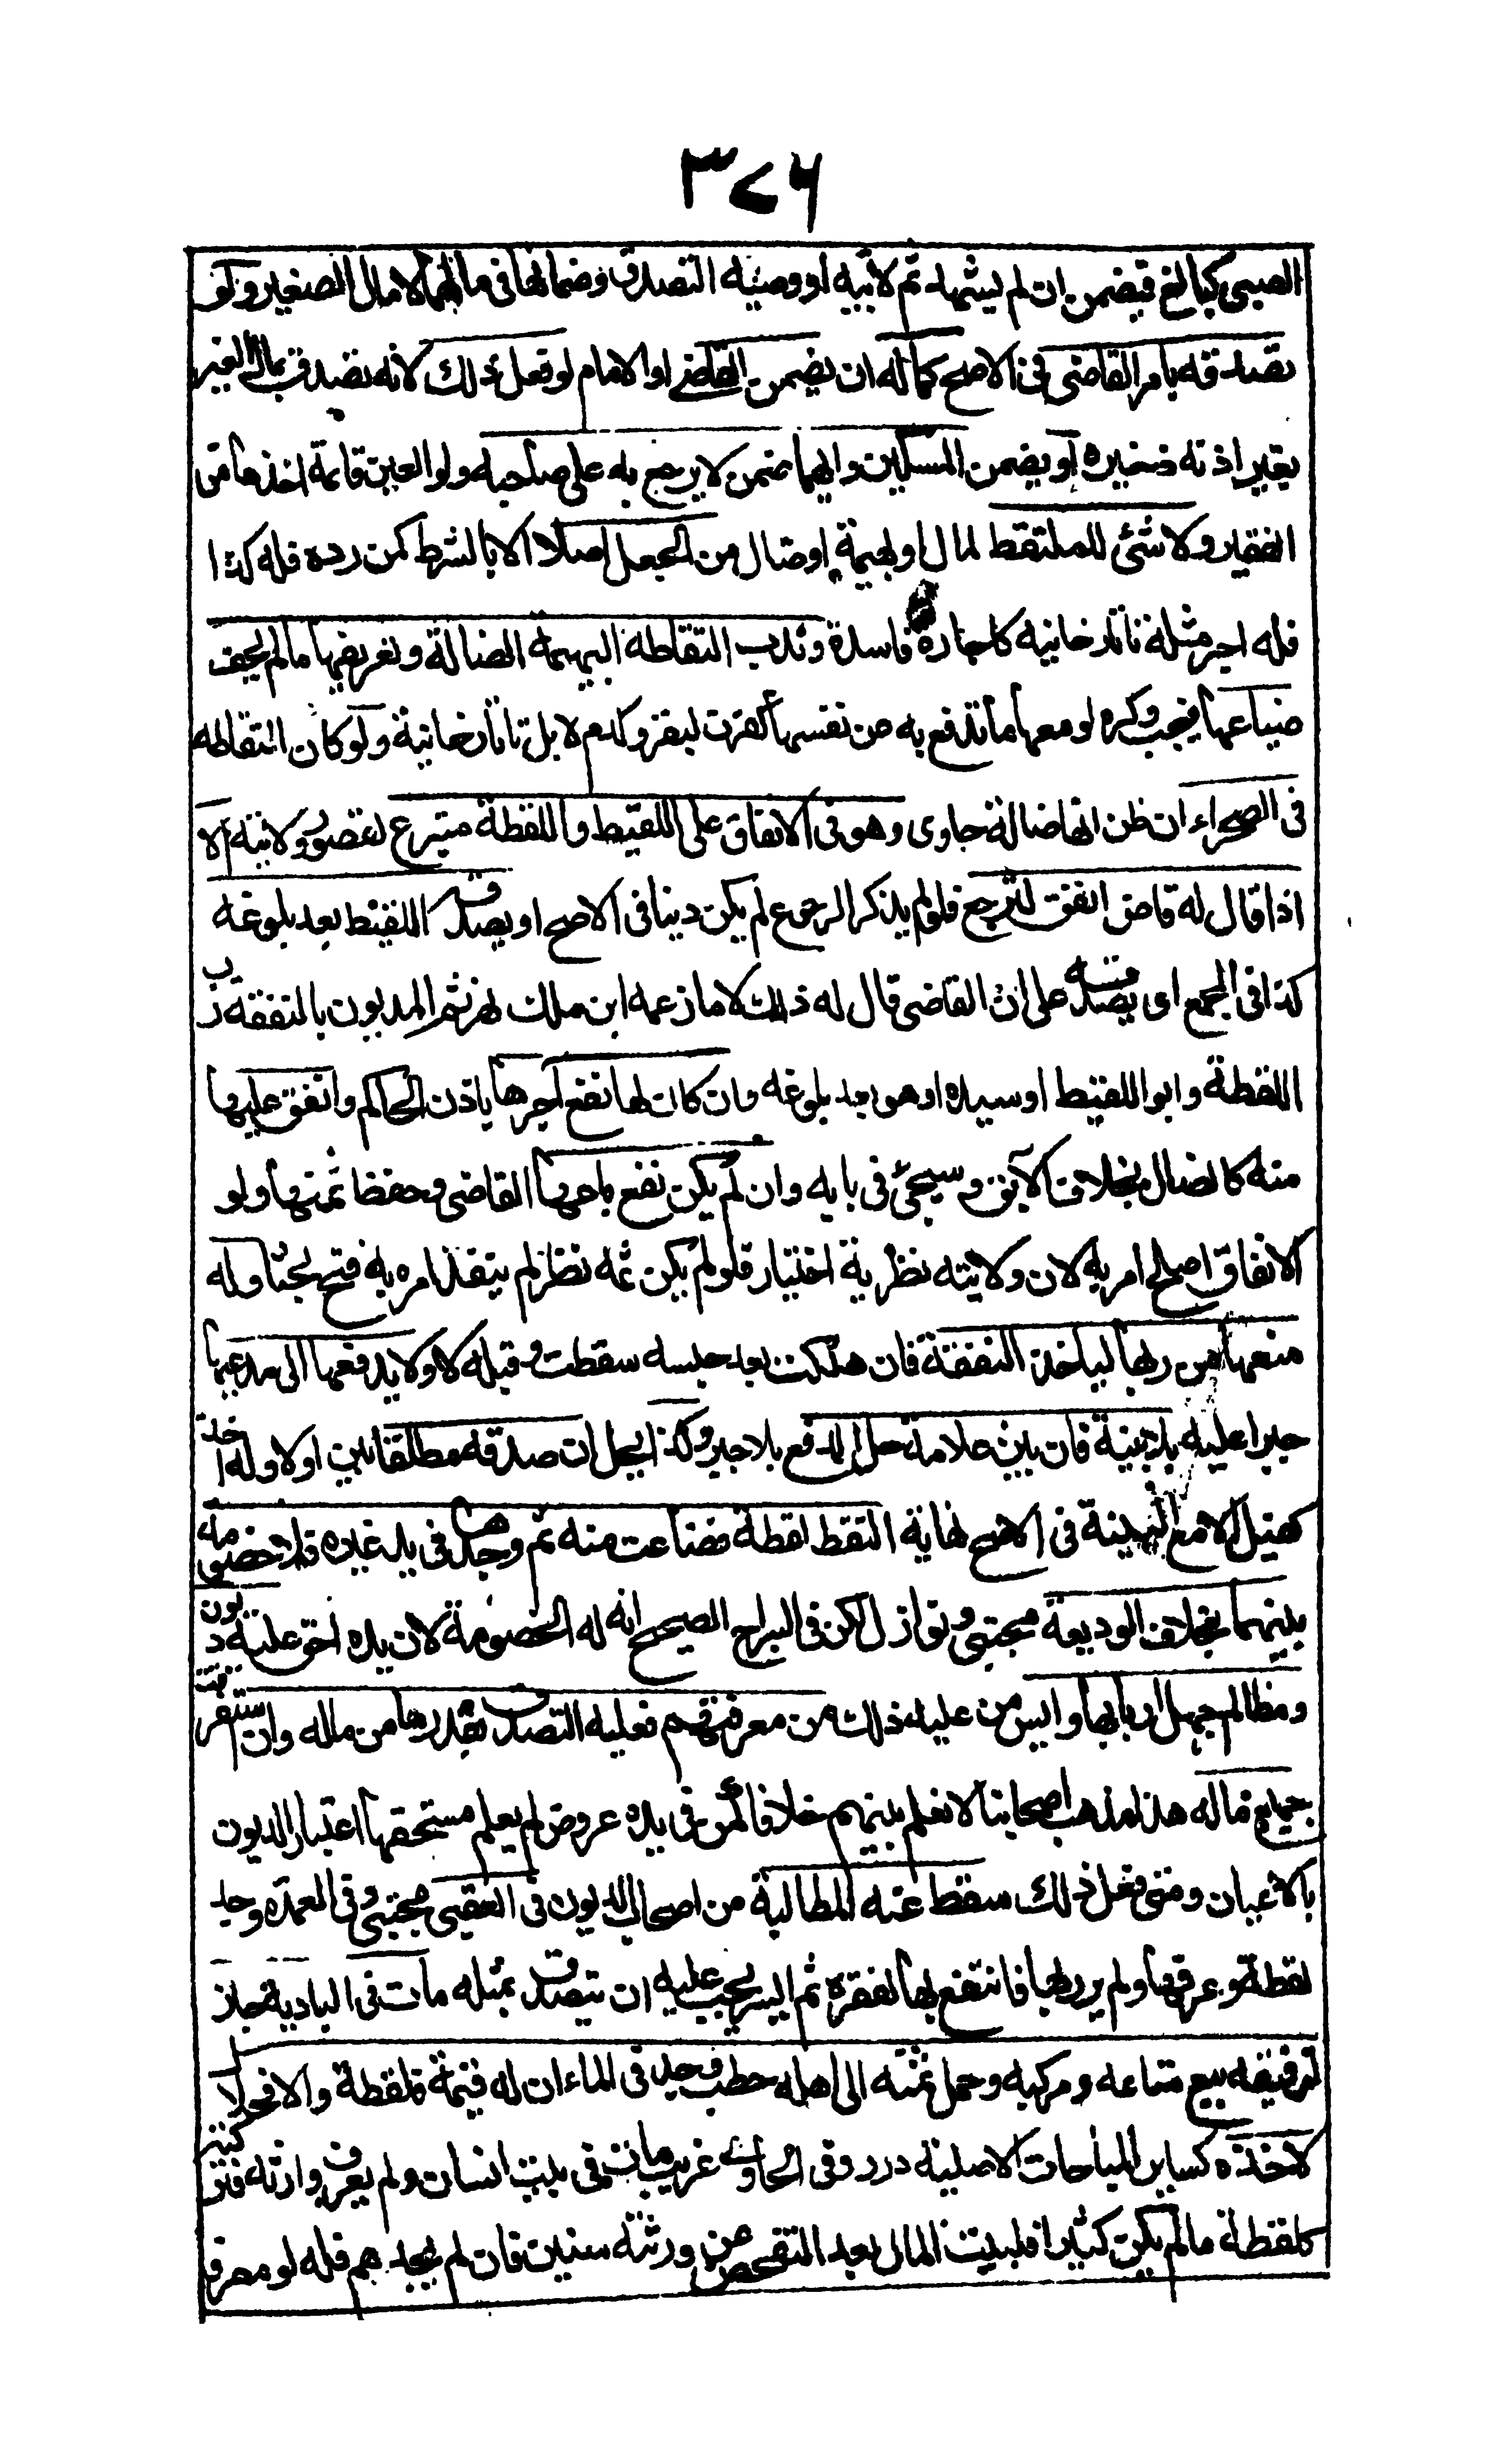 ٣٧٦
الصبي كبالغ فيضمن ان لم يشهد ثم لابيه او وصيه التصدق وضمانها في مالهما لا مال الصغير ولو
تصدقه بامر القاضي في الاصح كما له ان يضمن القاضي او الامام لو فعل ذلك لانه تصدق بمال الغير
بغير اذنه ذخيره او يضمن المسكين وايهما ضمن لا يرجع به على صاحبه ولو العين قائمة اخذها من
الفقير ولا شئ للملتقط لمال او بهيمة او ضال من الجعل اصلا الا بالشرط كمن رده فله كذا
فله اجر مثله تاتارخانيه كاجارة فاسدة وندب التقاطه البهيمه الضالة وتعريفها مالم يخف
ضياعها فيجب وكره لو معها ما تدفع به من نفسها كقرن لبقر وكدم لابل تاتارخانية ولو كان التقاطه
في الصحراء ان ظن انها ضالة حاوي وهو في الانفاق على اللقيط واللقطة متبرع لقصور ولايته الا
اذا قال له قاض انفق لترجع فلو لم يذكر الرجوع لم يكن دينا في الاصح او يصدقه اللقيط بعد بلوغه
كذا في المجمع اي يصدقه على ان القاضي قال له ذلك لا ما زعمه ابن ملك نهر ثم المديون بالنفقة رب
اللقطة وابو اللقيط او سيده او هو بعد بلوغه وان كان لها نفع اجرها باذن الحاكم وانفق عليها
منه كالضال بخلاف الآبق وسيجئ في بابه وان لم يكن نفع باعها القاضي وحفظ ثمنها ولو
الانفاق اصلح امر به لان ولايته نظرية اختيار فلو لم يكن ثمه نظر لم ينفذ امره به فتح بحثا وله
منعها من ربها لياخذ النفقة فان هلكت بعد حبسه سقطت وقبله لا ولا يدفعها الى مدعيها
جبرا عليه بلا بينة فان بين علامة حل الدفع بلا جبر وكذا يحل ان صدقه مطلقا بين او لا وله اخذ
كفيل الا مع البينة في الاصح نهاية التقط لقطة فضاعت منه ثم وجدها في يد غيره فلا خصومه
بينهما بخلاف الوديعة مجتبى ونوازل لكن في السراج الصحيح انه له الخصومة لان يده احق عليه ديون
ومظالم جهل اربابها وايس من عليه ذلك من معرفتهم فعليه التصدق بقدرها من ماله وان استغرقت
جميع ماله هذا مذهب اصحابنا لا نعلم بينهم خلافا كمن في يده عروض لم يعلم مستحقها اعتبار الديون
بالاعيان ومتى فعل ذلك سقط عنه المطالبة من اصحاب الديون في العقبى مجتبى وفي العمده وجد
لقطة وعرفها ولم ير ربها فانتفع بها لفقره ثم ايسر يجب عليه ان يتصدق بمثله مات في البادية جاز
لرفيقه بيع متاعه ومركبه وحمل ثمنه الى اهله حطب وجد في الماء ان له قيمة فلقطة والا فحلال
لاخذه كساير المباحات الاصلية درر وفي الحاوي غريب مات في بيت انسان ولم يعرف وارثه فتركته
كلقطة مالم يكن كثيرا فلبيت المال بعد التفحص عن ورثته سنين فان لم يجدهم فله لو مصرفا